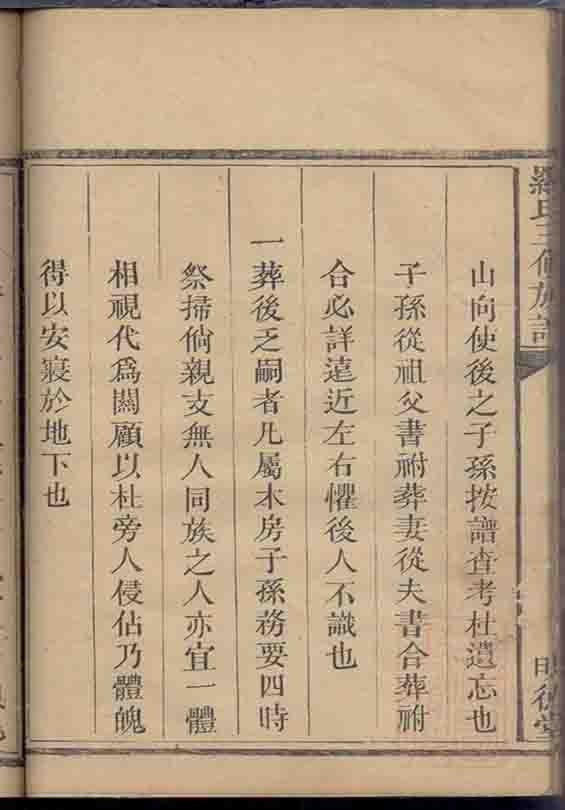 羅氏三修族譜
山向使後之子孫按譜查考杜遺忘也
子孫從祖父書祔葬妻從夫書合葬祔
合必詳遠近左右懼後人不識也
一葬後乏嗣者凡屬本房子孫務要四時
祭掃倘親支無人同族之人亦宜一體
相視代爲關顧以杜旁人侵佔乃體魄
得以安寢於地下也
明德堂